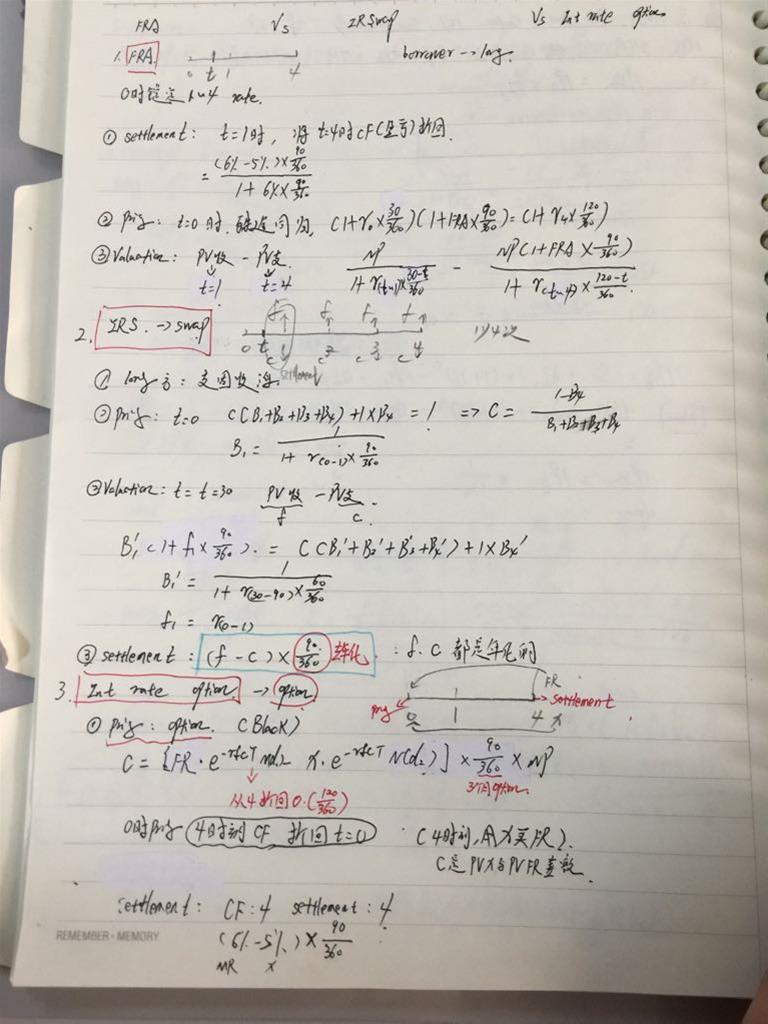 FRA Vs IRSwap Vs Int rate option
1. FRA 0 t 1 4 borrower → long.
0时锁定1~4 rate.
① settlement: t=1时, 将t=4时CF(盈亏)折回.
= (6%-5%)×90/360 / 1+6%×90/360
② pricing: t=0时, (1+r₀×30/360)(1+FRA×90/360)=(1+r₄×120/360)
③ Valuation: PV收 - PV支 NP / 1+r(t~1)×30-t/360 - NP(1+FRA×90/360) / 1+r(t~4)×120-t/360.
t=1 t=4
2. IRS. → swap f f f f
0 t 1 2 3 4 1年4次
c c c c
settlement
① long方: 支固收浮.
② pricing: t=0 C(B₁+B₂+B₃+B₄)+1×B₄ = 1 => C = 1-B₄ / B₁+B₂+B₃+B₄
B₁ = 1 / 1+r(0-1)×90/360
③ Valuation: t=t=30 PV收 - PV支.
f c
B₁'(1+f₁×90/360). = C(B₁'+B₂'+B₃'+B₄')+1×B₄'
B₁' = 1 / 1+r(30-90)×60/360
f₁ = r(0-1)
③ settlement: (f-c)×90/360 年化 ∵ f.c 都是年化的
3. Int rate option. → option FR
pricing → settlement
0 1 4 X
① pricing: option. (Black)
C = [FR·e^-rfcT N(d₁ X·e^-rfcT N(d₂)]×90/360×NP
从4折回0.(120/360) 3个月option.
0时pricing 4时刻CF 折回t=0 (4时刻,用X买FR).
C是PVX与PVFR差数.
settlement: CF:4 settlement:4
(6%-5%)×90/360
MR X
REMEMBER·MEMORY